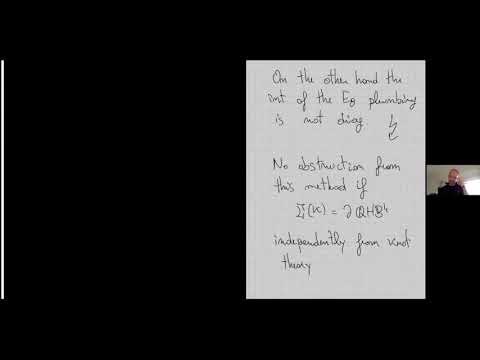 On the other hand the
int of the E8 plumbing
is not diag ↯
No obstruction from
this method if
Σ(K) = ∂ QHB⁴
independently from knot
theory